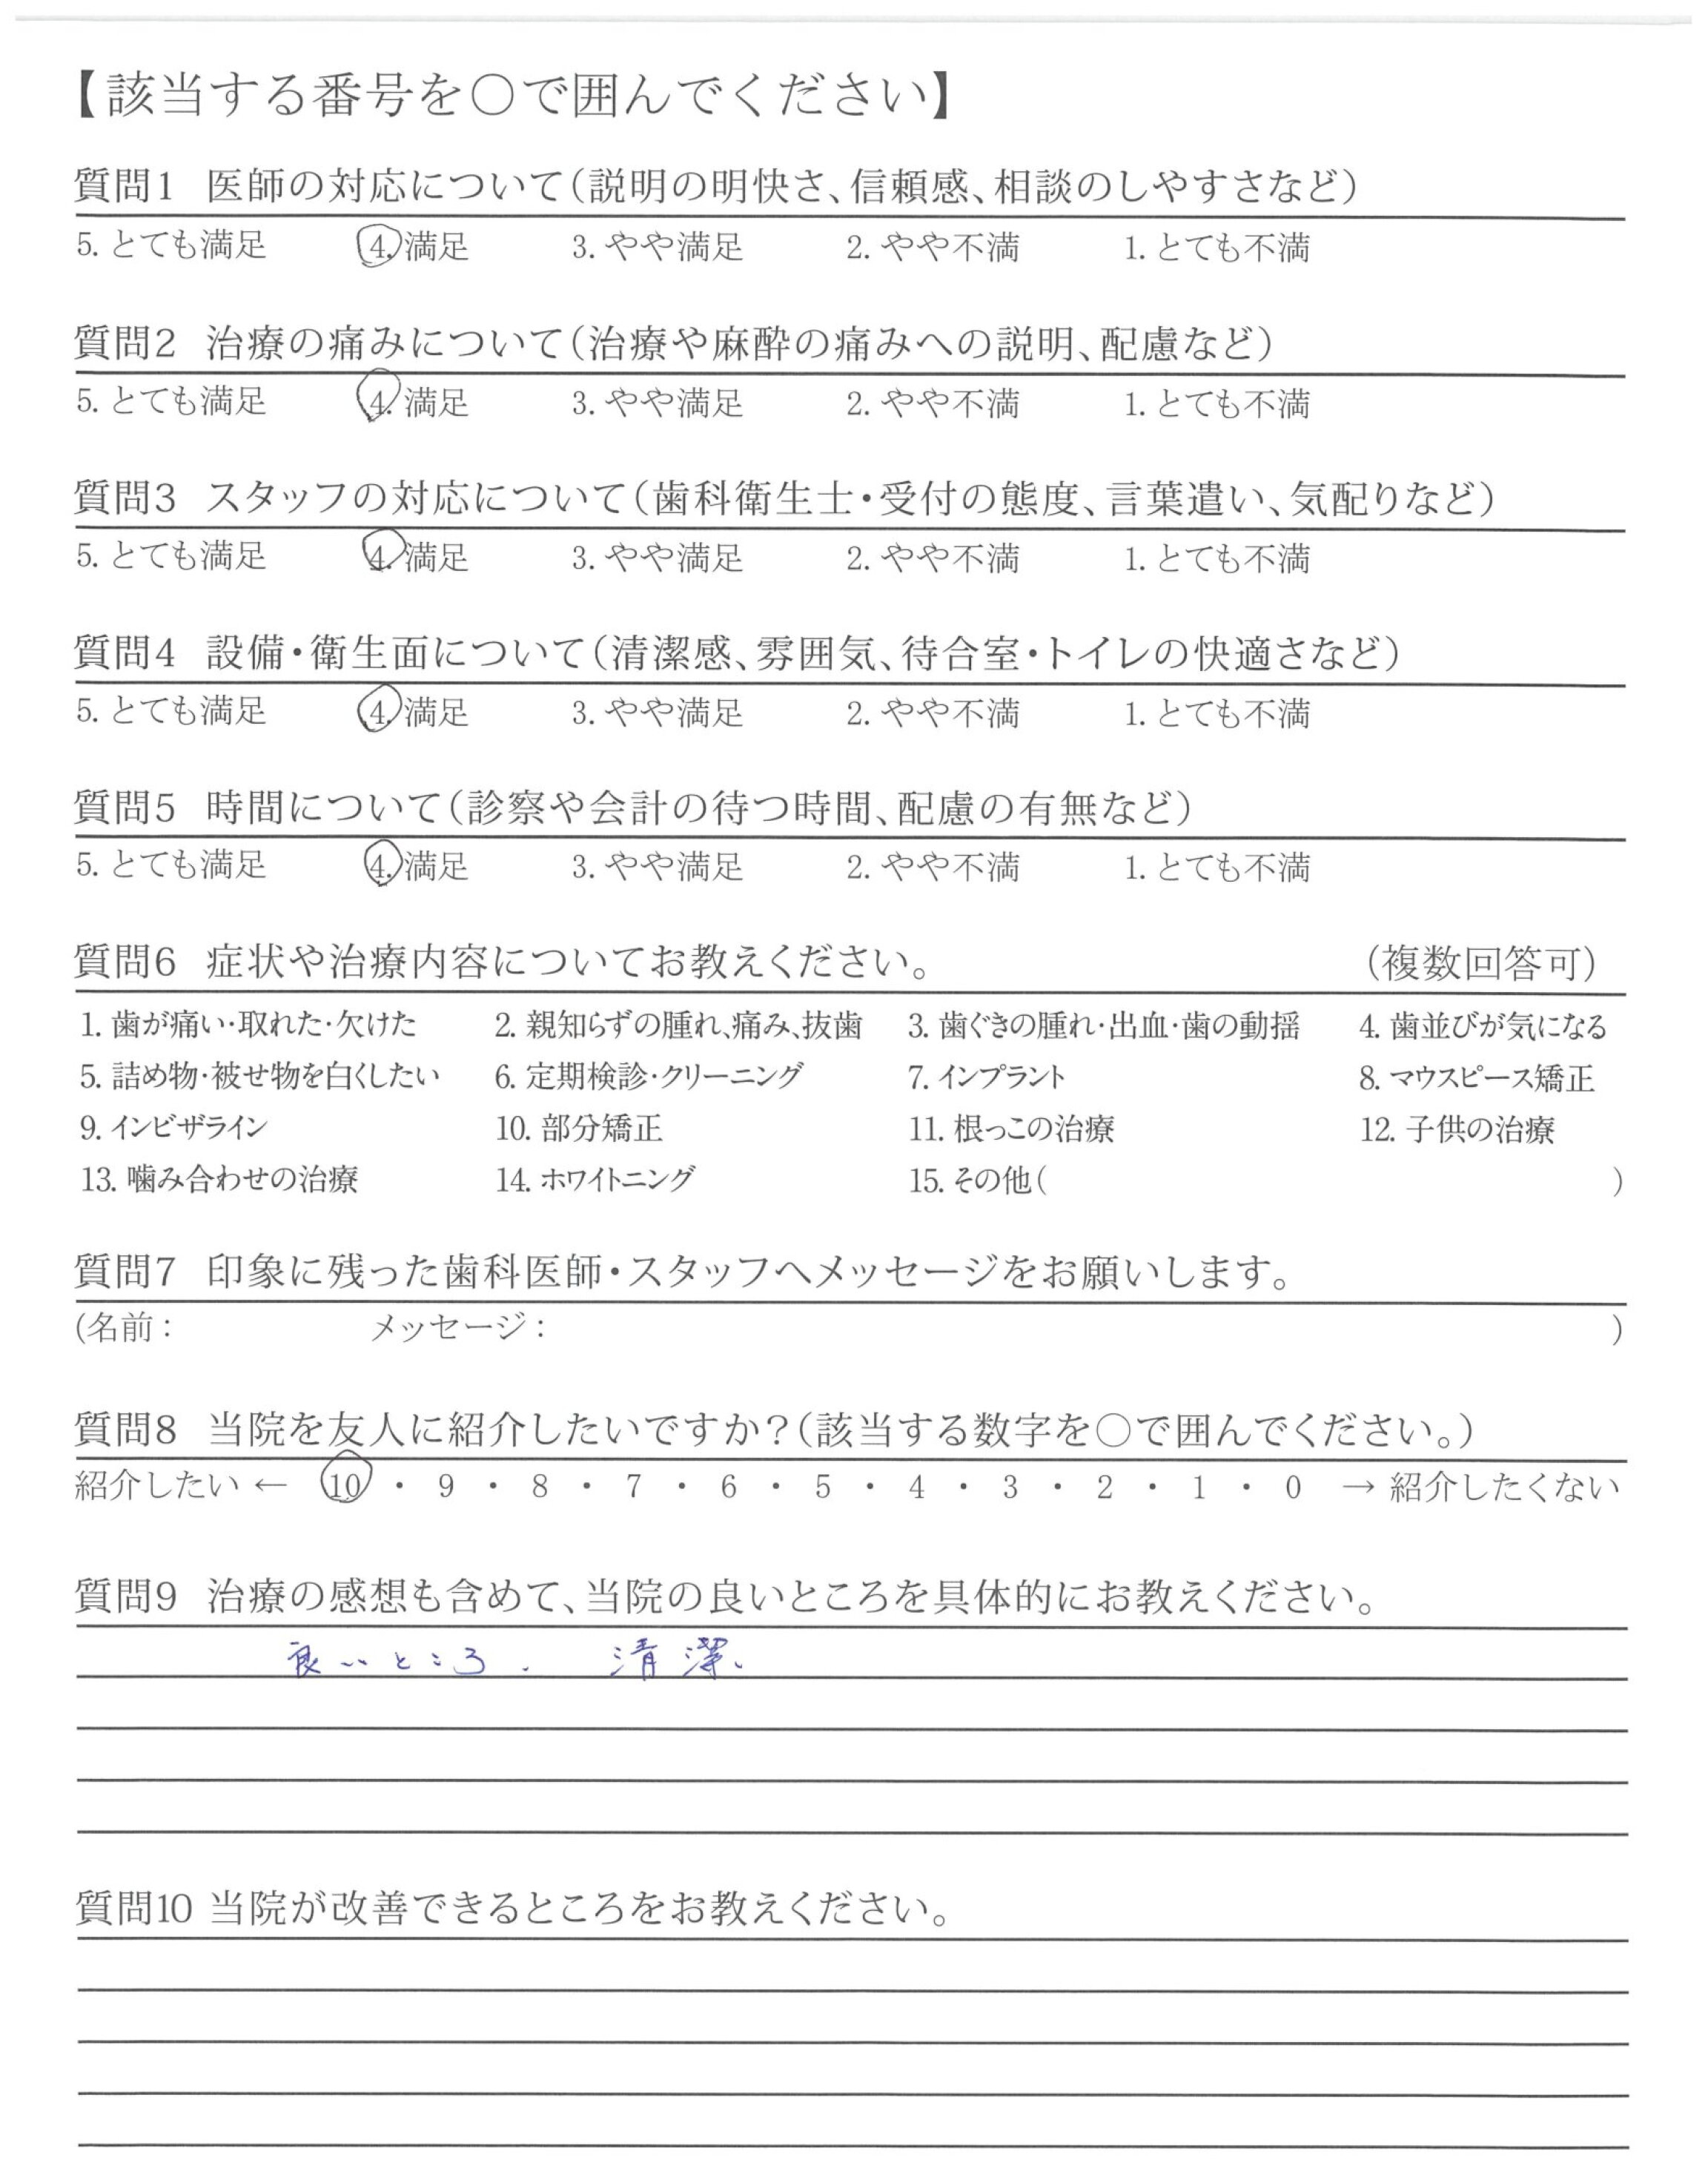 【該当する番号を○で囲んでください】
質問1 医師の対応について(説明の明快さ、信頼感、相談のしやすさなど)
5. とても満足 4. 満足 3. やや満足 2. やや不満 1. とても不満
質問2 治療の痛みについて(治療や麻酔の痛みへの説明、配慮など)
5. とても満足 4. 満足 3. やや満足 2. やや不満 1. とても不満
質問3 スタッフの対応について(歯科衛生士・受付の態度、言葉遣い、気配りなど)
5. とても満足 4. 満足 3. やや満足 2. やや不満 1. とても不満
質問4 設備・衛生面について(清潔感、雰囲気、待合室・トイレの快適さなど)
5. とても満足 4. 満足 3. やや満足 2. やや不満 1. とても不満
質問5 時間について(診察や会計の待つ時間、配慮の有無など)
5. とても満足 4. 満足 3. やや満足 2. やや不満 1. とても不満
質問6 症状や治療内容についてお教えください。 (複数回答可)
1. 歯が痛い・取れた・欠けた 2. 親知らずの腫れ、痛み、抜歯 3. 歯ぐきの腫れ・出血・歯の動揺 4. 歯並びが気になる
5. 詰め物・被せ物を白くしたい 6. 定期検診・クリーニング 7. インプラント 8. マウスピース矯正
9. インビザライン 10. 部分矯正 11. 根っこの治療 12. 子供の治療
13. 噛み合わせの治療 14. ホワイトニング 15. その他( )
質問7 印象に残った歯科医師・スタッフへメッセージをお願いします。
(名前: メッセージ: )
質問8 当院を友人に紹介したいですか?(該当する数字を○で囲んでください。)
紹介したい ← 10 ・ 9 ・ 8 ・ 7 ・ 6 ・ 5 ・ 4 ・ 3 ・ 2 ・ 1 ・ 0 → 紹介したくない
質問9 治療の感想も含めて、当院の良いところを具体的にお教えください。
良いところ. 清潔、
質問10 当院が改善できるところをお教えください。